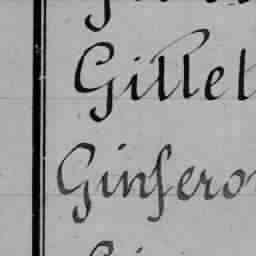 Gillet
Ginsero